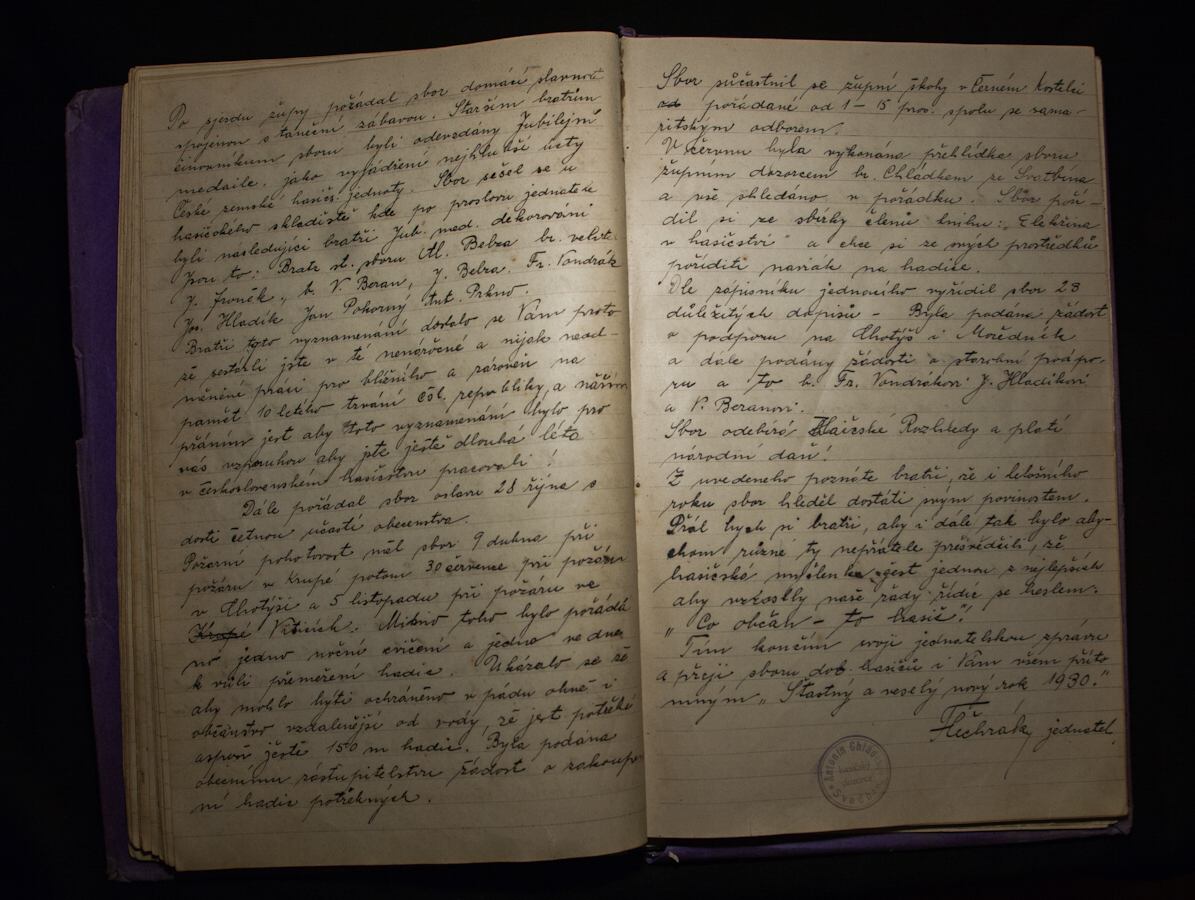 Po sjezdu župy pořádal sbor domácí slavnost
spojenou s taneční zábavou. Starším bratrům
činovníkum sboru byli odevzdány Jubilejní
medaile, jako vyjádření nejhlubší úcty
České zemské hasič. jednoty. Sbor sešel se u
hasičského skladiště kde po proslovu jednatele
byli následující bratři Jub. med. dekorováni
Jsou to: Bratr st. sboru Al. Bebra br. velitel
J. Froněk, b. V. Beran, J. Bebra. Fr. Vondrák
Jos. Hladík Jan Pokorný Ant. Prkno.
Bratři toto vyznamenání dostalo se Vám proto
že sestárli jste v té nenáročné a nijak neod-
měněné práci pro bližního a zároveň na
pamět 10 letého trvání čsl. republiky, a naším
přáním jest aby toto vyznamenání bylo pro
vás vzpruhou aby jste ještě dlouhá léta
v československém hasičstvu pracovali!
Dále pořádal sbor oslavu 28 října s
dosti četnou učastí obecenstva.
Požární pohotovost měl sbor 9 dubna při
požáru v Krupé potom 30 července při požáru
v Chotýši a 5 listopadu při požáru ve
Krupé Vrticích. Mimo toho bylo pořádá
no jedno noční cvičení a jedno ve dne
k vůli přeměření hadic. Ukázalo se že
aby mohlo býti ochráněno v pádu ohně i
občanstvo vzdalenější od vody, že jest potřebí
aspoň ještě 150 m hadic. Byla podána
obecnímu zástupitelstvu žádost o zakoupe
ní hadic potřebných.
Sbor súčastnil se župní školy v Černém Kostelci
od pořádané od 1 – 15 pros. spolu se sama-
ritským odborem.
V červnu byla vykonána přehlídka sboru
župním dozorcem br. Chládkem ze Svatbína
a vše shledáno v pořádku. Sbor poří-
dil si ze sbírky členů knihu: „Elektřina
v hasičství“ a chce si ze svých prostředků
pořiditi naviák na hadice.
Dle zapisníku jednacího vyřídil sbor 28
důležitých dopisů – Byla podána žádost
o podporu na Chotýš i Moředník
a dále podány žádosti o starobní podpo-
ru a to b. Fr. Vondrákovi J. Hladíkovi
a V. Beranovi.
Sbor odebírá Hasičské Rozhledy a platí
národní daň!
Z uvedeného poznáte bratři, že i letošního
roku sbor hleděl dostáti svým povinostem.
Přál bych si bratři, aby i dále tak bylo aby-
chom různé ty nepřátele přesvědčili, že
hasičská myšlenka jest jednou z nejlepších
aby vzrostly naše řady řídíc se heslem:
„Co občan – to hasič“!
Tím končím svoji jednatelskou zprávu
a přeji sboru dob. hasičů i Vám všem příto
mným „Šťastný a veselý nový rok 1930.“
Těchrák, jednatel
Antonín Chládek